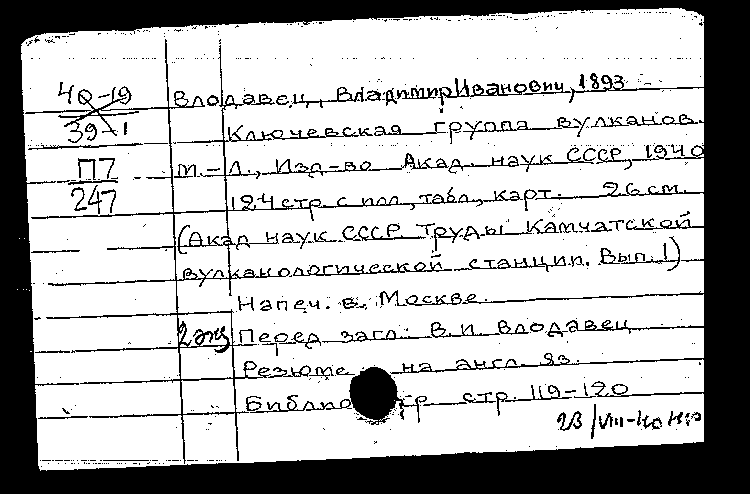 40-19
39-1
Влодавец, Владимир Иванович, 1893 -
Ключевская группа вулканов.
П7
247
М.-Л., Изд-во Акад. наук СССР, 1940
124 стр. с илл., табл., карт. 26 см.
(Акад наук СССР. Труды Камчатской
вулканологической станции. Вып. 1)
Напеч. в. Москве.
2 экз
Перед загл.: В.И. Влодавец
Резюме на англ. яз.
Библио гр стр. 119-120
23/VIII-40